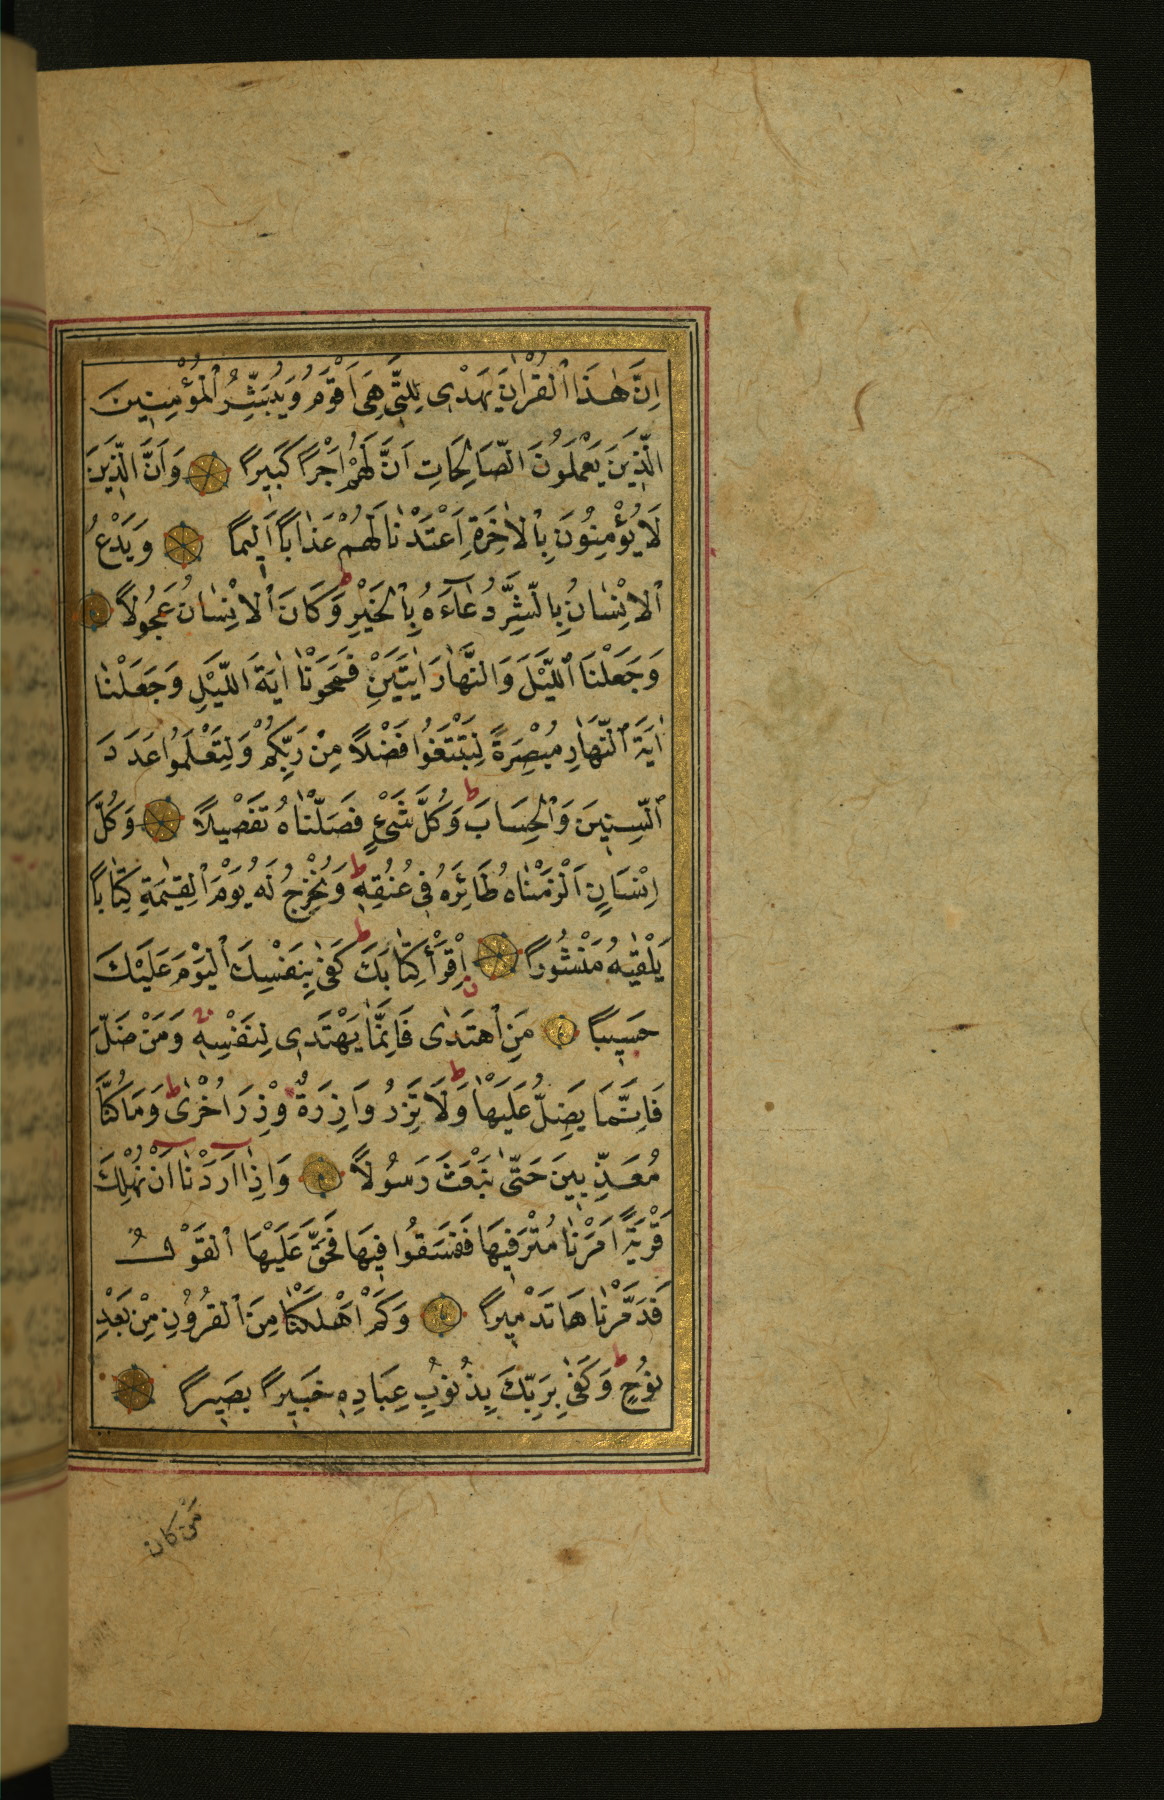 اِنَّ هٰذَا ٱلْقُرْاٰنَ يَهْدٖى لِلَّتٖى هِىَ اَقْوَمُ وَيُبَشِّرُ ٱلْمُؤْمِنٖينَ
الَّذٖينَ يَعْمَلُونَ الصَّالِحَاتِ اَنَّ لَهُمْ اَجْرًا كَبٖيرًا وَاَنَّ الَّذٖينَ
لَا يُؤْمِنُونَ بِٱلْاٰخِرَةِ اَعْتَدْنَا لَهُمْ عَذَابًا اَلٖيمًا وَيَدْعُ
ٱلْاِنْسَانُ بِالشَّرِّ دُعَٓاءَهُ بِٱلْخَيْرِ ط وَكَانَ ٱلْاِنْسَانُ عَجُولًا
وَجَعَلْنَا ٱلَّيْلَ وَالنَّهَارَ اٰيَتَيْنِ فَمَحَوْنَا اٰيَةَ الَّيْلِ وَجَعَلْنَا
اٰيَةَ ٱلنَّهَارِ مُبْصِرَةً لِتَبْتَغُوا فَضْلًا مِنْ رَبِّكُمْ وَلِتَعْلَمُوا عَدَدَ
ٱلسِّنٖينَ وَٱلْحِسَابَ ط وَكُلَّ شَىْءٍ فَصَّلْنَاهُ تَفْصٖيلًا وَكُلَّ
اِنْسَانٍ اَلْزَمْنَاهُ طَائِرَهُ فٖى عُنُقِهٖ ط وَنُخْرِجُ لَهُ يَوْمَ ٱلْقِيٰمَةِ كِتَابًا
يَلْقٰيهُ مَنْشُورًا اِقْرَأْ كِتَابَكَ ط كَفٰى بِنَفْسِكَ ٱلْيَوْمَ عَلَيْكَ
حَسٖيبًا مَنِ ٱهْتَدٰى فَاِنَّمَا يَهْتَدٖى لِنَفْسِهٖ ج وَمَنْ ضَلَّ
فَاِنَّمَا يَضِلُّ عَلَيْهَا ط وَلَا تَزِرُ وَازِرَةٌ وِزْرَ اُخْرٰى ط وَمَا كُنَّا
مُعَذِّبٖينَ حَتّٰى نَبْعَثَ رَسُولًا وَاِذَا اَرَدْنَا اَنْ نُهْلِكَ
قَرْيَةً اَمَرْنَا مُتْرَفٖيهَا فَفَسَقُوا فٖيهَا فَحَقَّ عَلَيْهَا ٱلْقَوْلُ
فَدَمَّرْنَاهَا تَدْمٖيرًا وَكَمْ اَهْلَكْنَا مِنَ ٱلْقُرُونِ مِنْ بَعْدِ
نُوحٍ ط وَكَفٰى بِرَبِّكَ بِذُنُوبِ عِبَادِهٖ خَبٖيرًا بَصٖيرًا
مَنْ كان